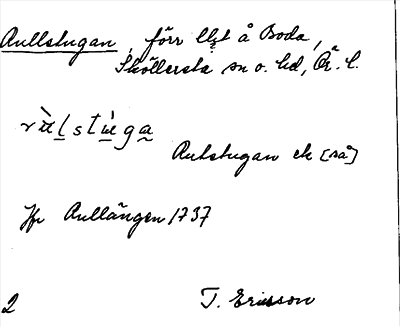 Rullstugan, förr lht å Boda,
Sköllersta sn o. hd, Ör. l.
Rutstugan ek [så]
Jfr Rullängen 1737
2 T. Ericsson